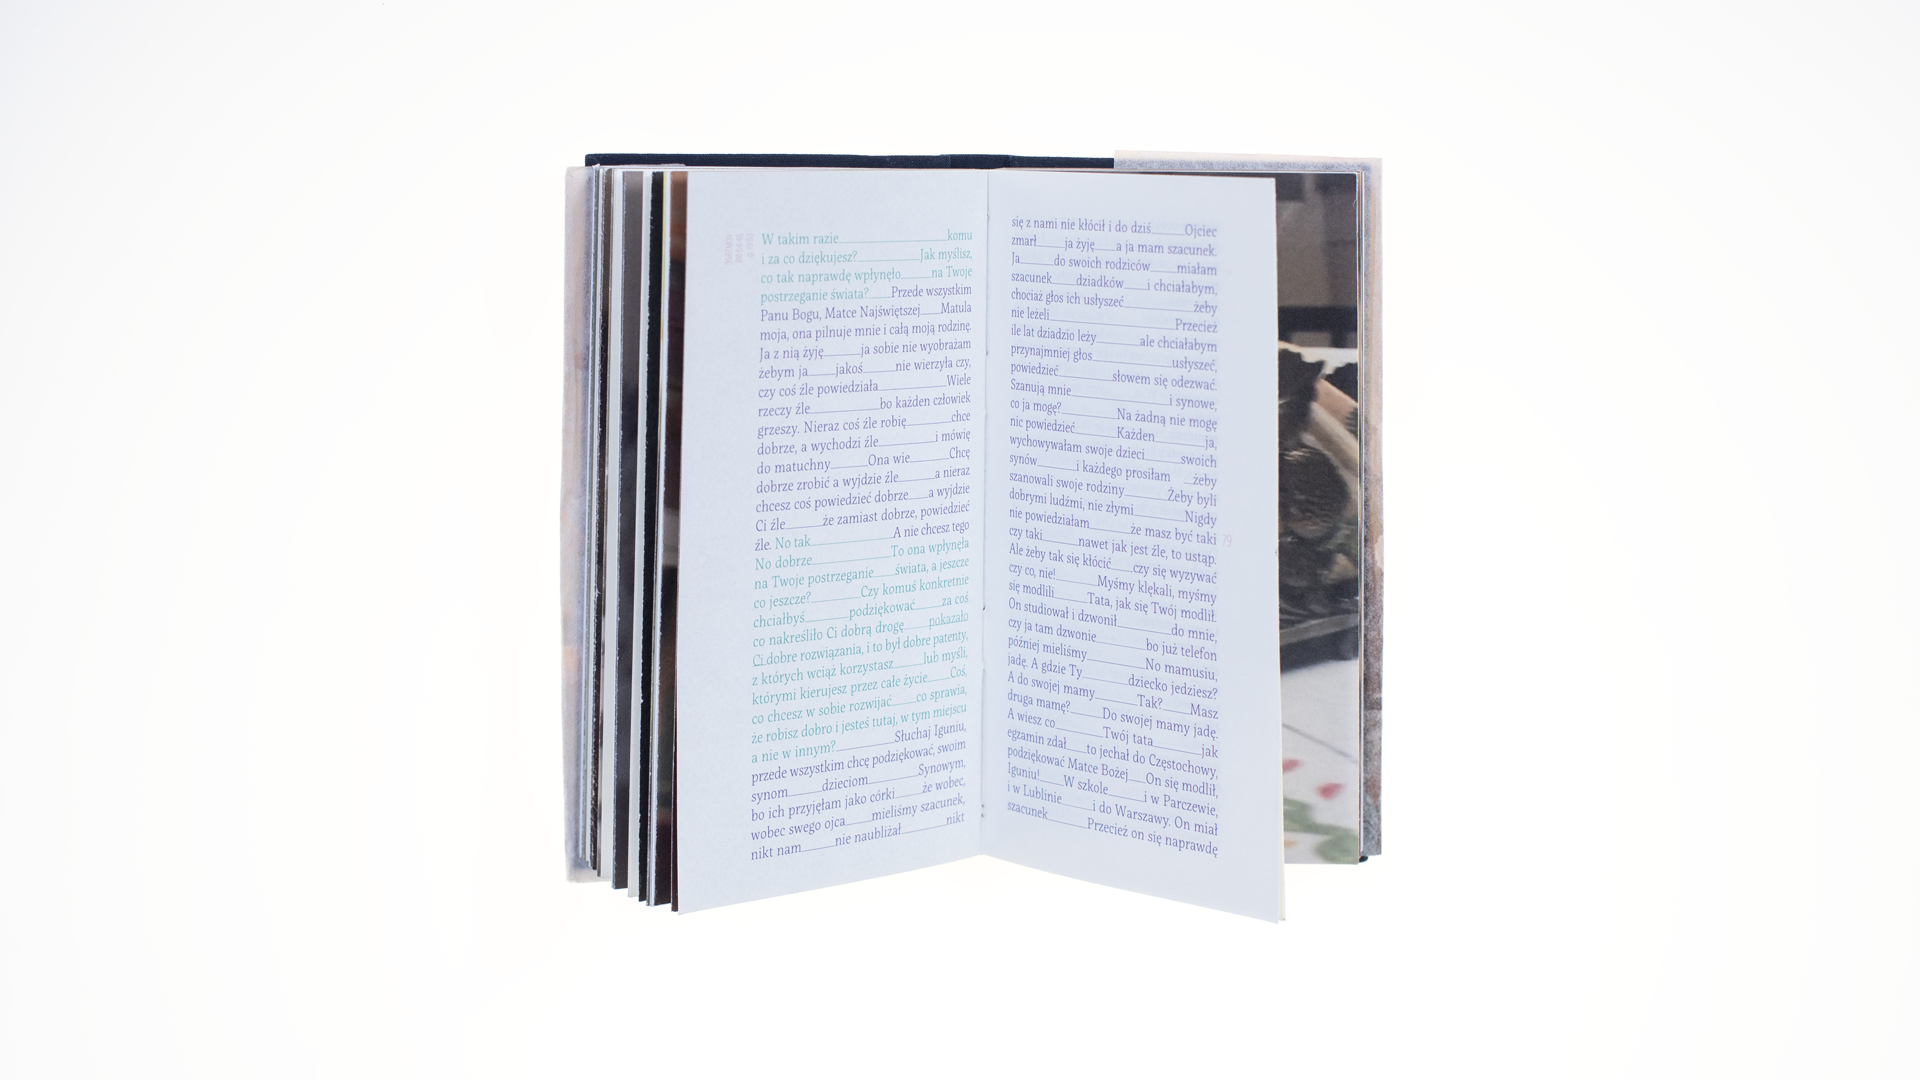 W takim razie____________________komu
i za co dziękujesz?____________Jak myślisz,
co tak naprawdę wpłynęło______na Twoje
postrzeganie świata?____Przede wszystkim
Panu Bogu, Matce Najświętszej____Matula
moja, ona pilnuje mnie i całą moją rodzinę.
Ja z nią żyję_______ja sobie nie wyobrażam
żebym ja_____jakoś______nie wierzyła czy,
czy coś źle powiedziała_____________Wiele
rzeczy źle_____________bo każden człowiek
grzeszy. Nieraz coś źle robię________chce
dobrze, a wychodzi źle___________i mówię
do matuchny_______Ona wie_______Chcę
dobrze zrobić a wyjdzie źle_______a nieraz
chcesz coś powiedzieć dobrze____a wyjdzie
Ci źle_______że zamiast dobrze, powiedzieć
źle. No tak________________A nie chcesz tego
No dobrze_______________To ona wpłynęła
na Twoje postrzeganie____świata, a jeszcze
co jeszcze?_________Czy komuś konkretnie
chciałbyś________podziękować_____za coś
co nakreśliło Ci dobrą drogę_____pokazało
Ci dobre rozwiązania, i to był dobre patenty,
z których wciąż korzystasz______lub myśli,
którymi kierujesz przez całe życie____Coś,
co chcesz w sobie rozwijać_____co sprawia,
że robisz dobro i jesteś tutaj, w tym miejscu
a nie w innym?___________Słuchaj Iguniu,
przede wszystkim chcę podziękować, swoim
synom______dzieciom_________Synowym,
bo ich przyjęłam jako córki_____że wobec,
wobec swego ojca_____mieliśmy szacunek,
nikt nam______nie naubliżał________nikt
się z nami nie kłócił i do dziś______Ojciec
zmarł_____ja żyję____a ja mam szacunek.
Ja______do swoich rodziców_____miałam
szacunek_____dziadków____i chciałabym,
chociaż głos ich usłyszeć____________żeby
nie leżeli______________________Przecież
ile lat dziadzio leży________ale chciałabym
przynajmniej głos______________usłyszeć,
powiedzieć_________słowem się odezwać.
Szanują mnie_________________i synowe,
co ja mogę?_________Na żadną nie mogę
nic powiedzieć_______Każden_________ja,
wychowywałam swoje dzieci______swoich
synów______i każdego prosiłam __żeby
szanowali swoje rodziny_______Żeby byli
dobrymi ludźmi, nie złymi_________Nigdy
nie powiedziałam_______że masz być taki
czy taki______nawet jak jest źle, to ustąp.
Ale żeby tak się kłócić____czy się wyzywać
czy co, nie!_______Myśmy klękali, myśmy
się modlili______Tata, jak się Twój modlił.
On studiował i dzwonił_________do mnie,
czy ja tam dzwonie________bo już telefon
później mieliśmy__________No mamusiu,
jadę. A gdzie Ty________dziecko jedziesz?
A do swojej mamy_______Tak?____Masz
druga mamę?_____Do swojej mamy jadę.
A wiesz co________Twój tata________jak
egzamin zdał____to jechał do Częstochowy,
podziękować Matce Bożej___On się modlił,
Iguniu!____W szkole______i w Parczewie,
i w Lublinie_____i do Warszawy. On miał
szacunek_______Przecież on się naprawdę
79